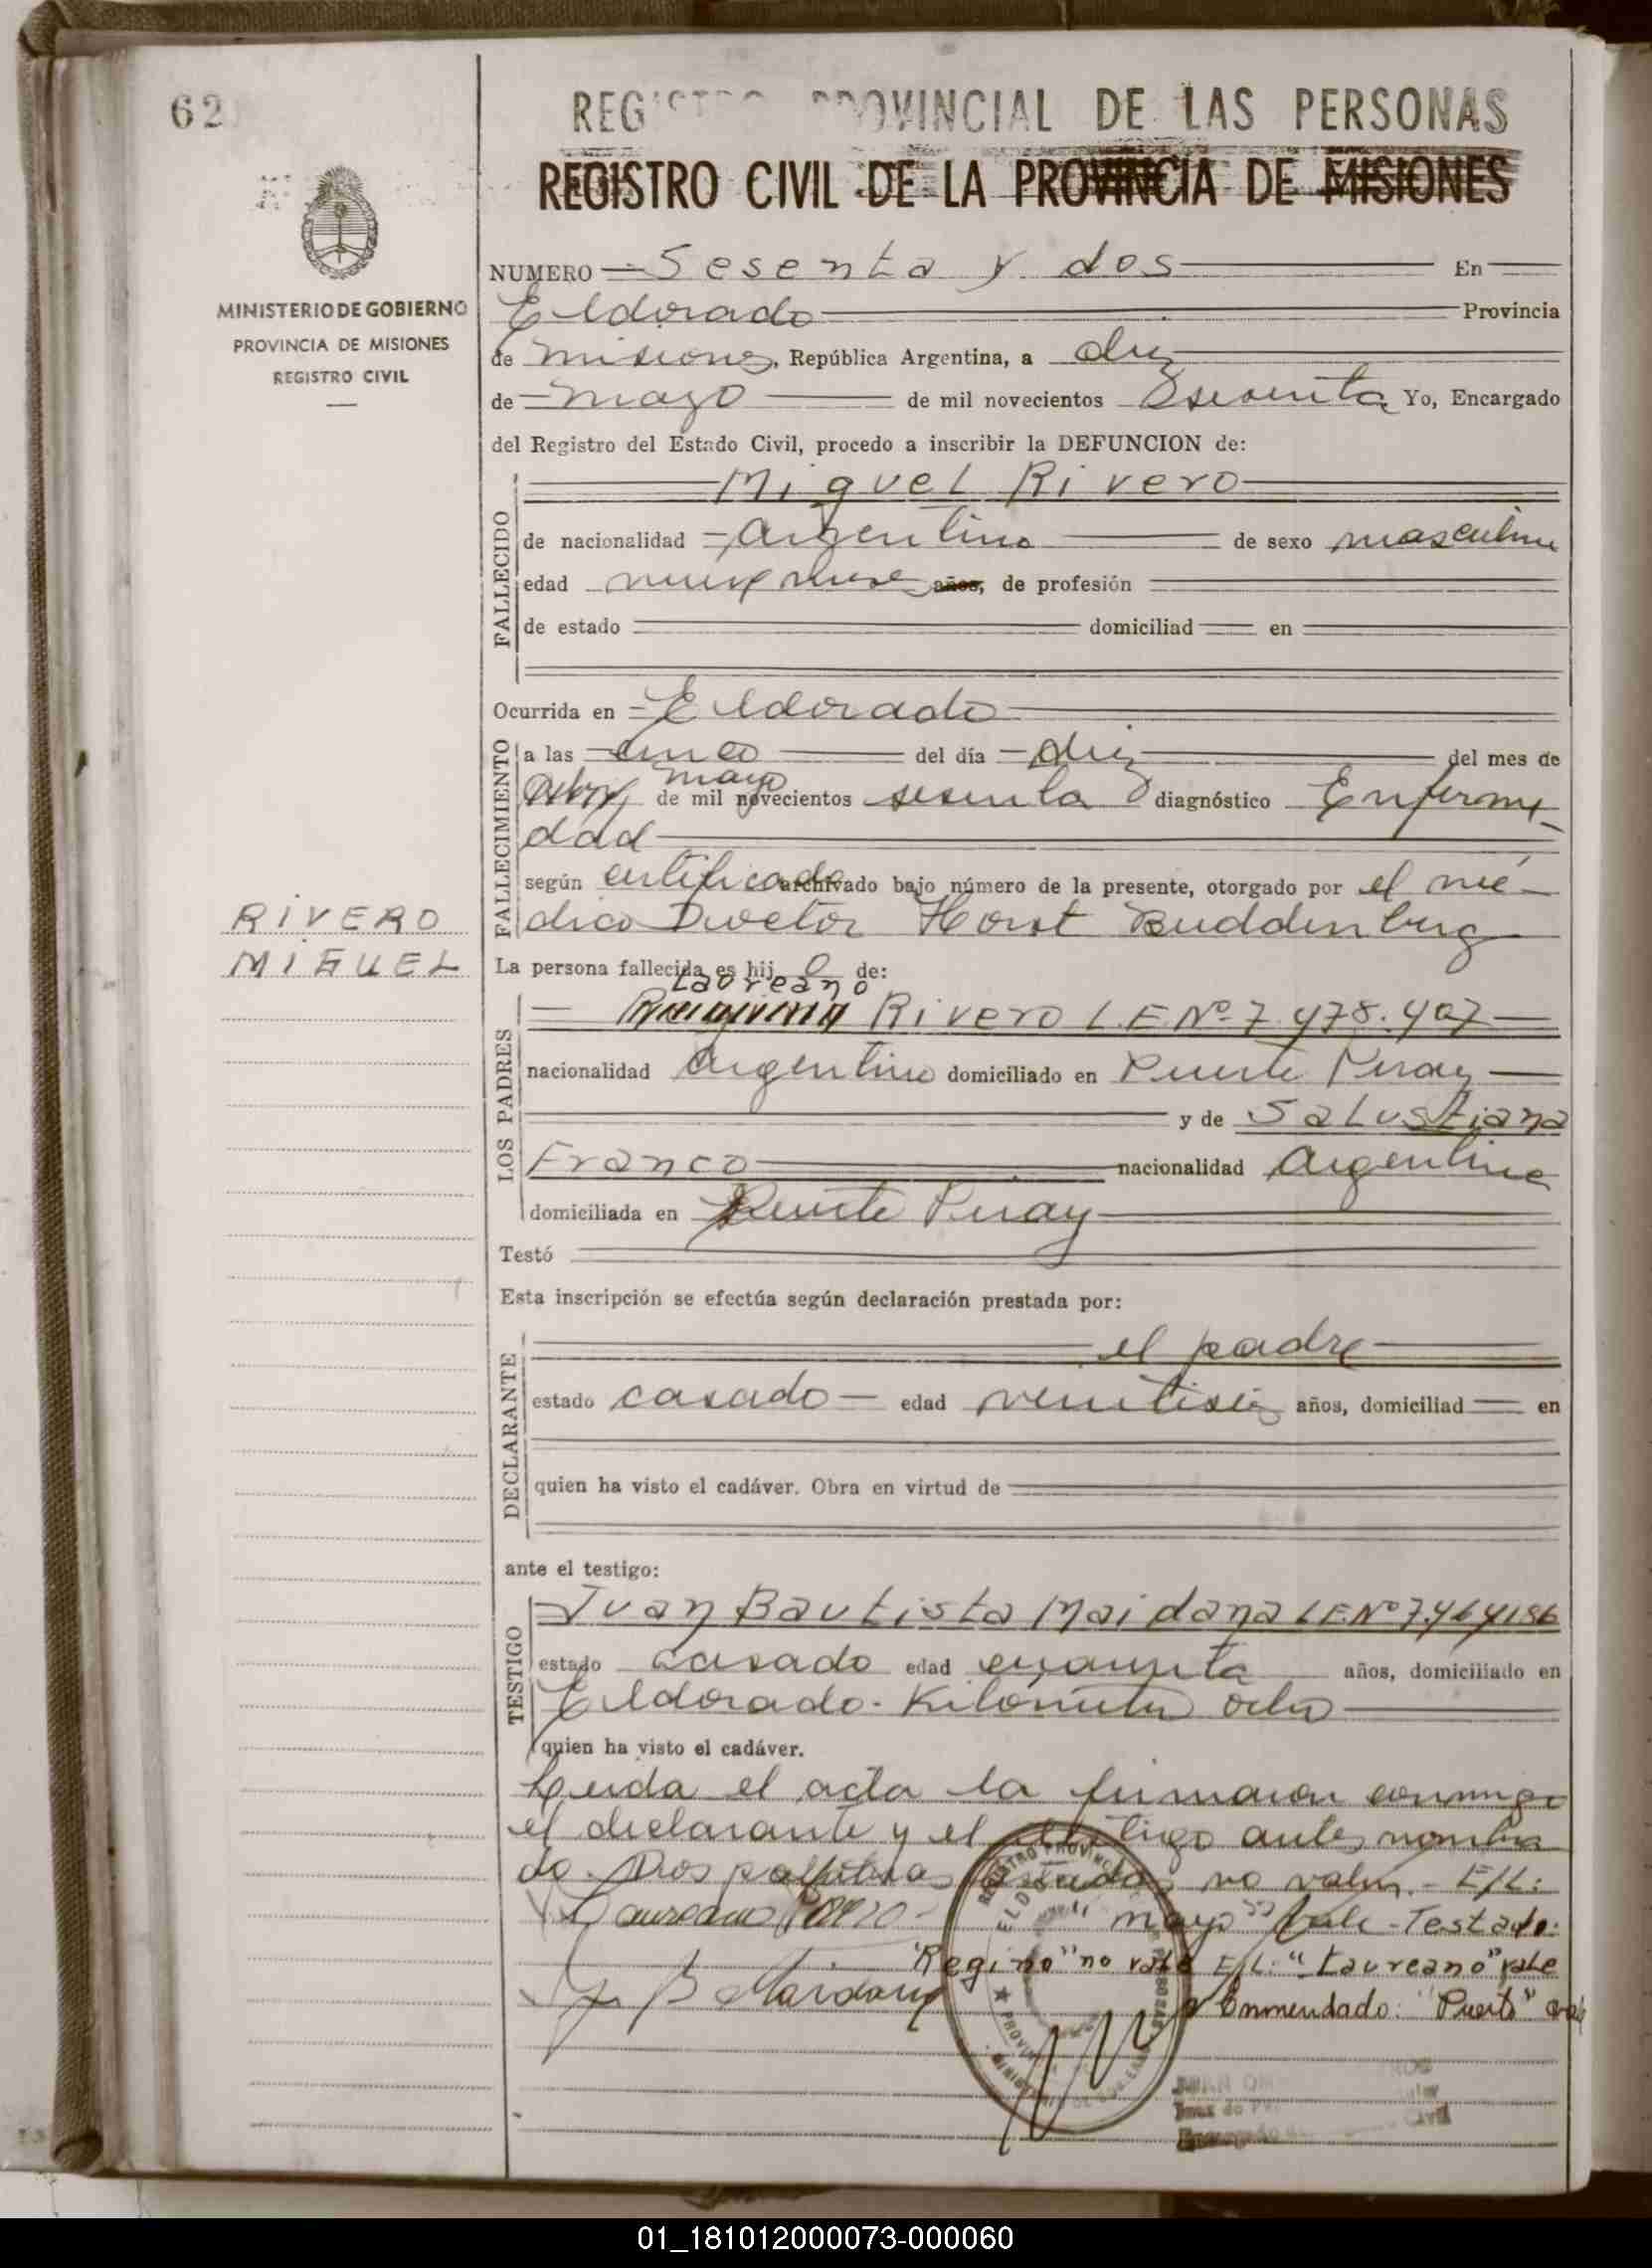 62
REGISTRO PROVINCIAL DE LAS PERSONAS
REGISTRO CIVIL DE LA PROVINCIA DE MISIONES
MINISTERIO DE GOBIERNO
PROVINCIA DE MISIONES
REGISTRO CIVIL
NUMERO Sesenta y dos En
Eldorado Provincia
de Misiones, República Argentina, a diez
de mayo de mil novecientos sesenta Yo, Encargado
del Registro del Estado Civil, procedo a inscribir la DEFUNCION de:
FALLECIDO
Miguel Rivero
de nacionalidad argentina de sexo masculino
edad nueve meses años, de profesión
de estado domiciliad en
Ocurrida en Eldorado
FALLECIMIENTO
a las cinco del día diez del mes de
mayo
de mil novecientos sesenta diagnóstico Enferme-
dad
según certificado archivado bajo número de la presente, otorgado por el mé-
dico Doctor Horst Buddenberg
RIVERO
MIGUEL
La persona fallecida es hij o de:
LOS PADRES
Laureano
Rivero L.E.Nº 7.478.407
nacionalidad argentino domiciliado en Puerto Piray
y de Salustiana
Franco nacionalidad argentina
domiciliada en Puerto Piray
Testó
Esta inscripción se efectúa según declaración prestada por:
DECLARANTE
el padre
estado casado edad veintiseis años, domiciliad en
quien ha visto el cadáver. Obra en virtud de
ante el testigo:
TESTIGO
Juan Bautista Maidana L.E.Nº 7.464186
estado casado edad cuarenta años, domiciliado en
Eldorado - Kilómetro ocho
quien ha visto el cadáver.
Leida el acta la firmaron conmigo
el declarante y el testigo antes nombra
do. Dos palabras testadas no valen. - E/L:
"mayo" Vale - Testado:
"Regino" no vale E/L: "Laureano" vale
Enmendado: "Puerto" vale
J. B. Maidana
REGISTRO PROVINCIAL DE LAS PERSONAS
ELDORADO
01_181012000073-000060